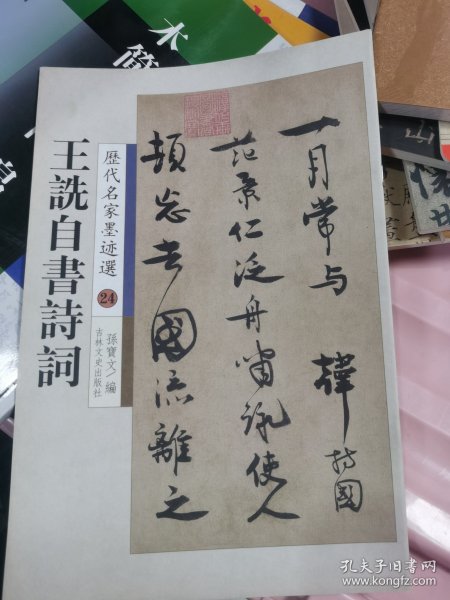 王詵自書詩詞
歷代名家墨迹選
24
孫寶文/編
吉林文史出版社
一月常与韓持國
范景仁泛舟嘯詠使人
頓忘去國流離之
木簡
山
孔夫子旧书网
www.kongfz.com